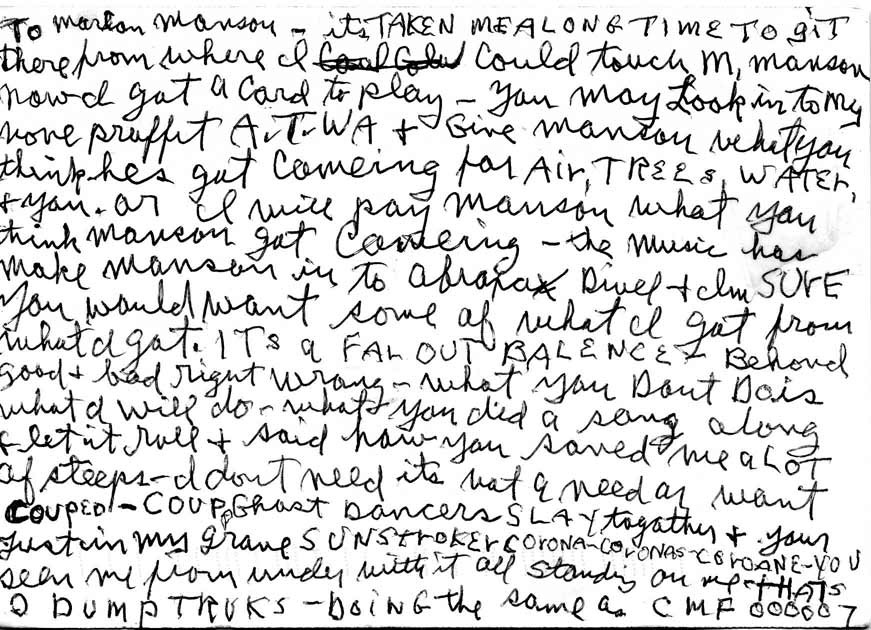 To marlon manson - its TAKEN ME A LONG TIME TO giT
there from where I Could touch M, manson
now I got a Card to play - you may Look in to my
none proffit A.T.WA + Give manson what you
think hes got Comeing for Air, TREEs, WATEr,
+ you. or I will pay manson what you
think manson got Comeing - the music has
make manson in to abraxax Divel + Im SURE
you would want some of what I got from
what I got. ITs a FAr OUT BALENCE - Behond
good + bad right wrong - what you Dont Do is
what I will do - what you did a song along
& let it roll + said how you saved me a LOT
of steeps - I dont need its not a need or want
COUPED - COUP, Ghost DANCErs SLAY togather + your
just in my grave SUNStroKEr COrONA-COrONAS-COrOANE-YOU
seen me from under with it all standing on me THATs
2 DUMP TRUKS - DOING the same as CMF 000007